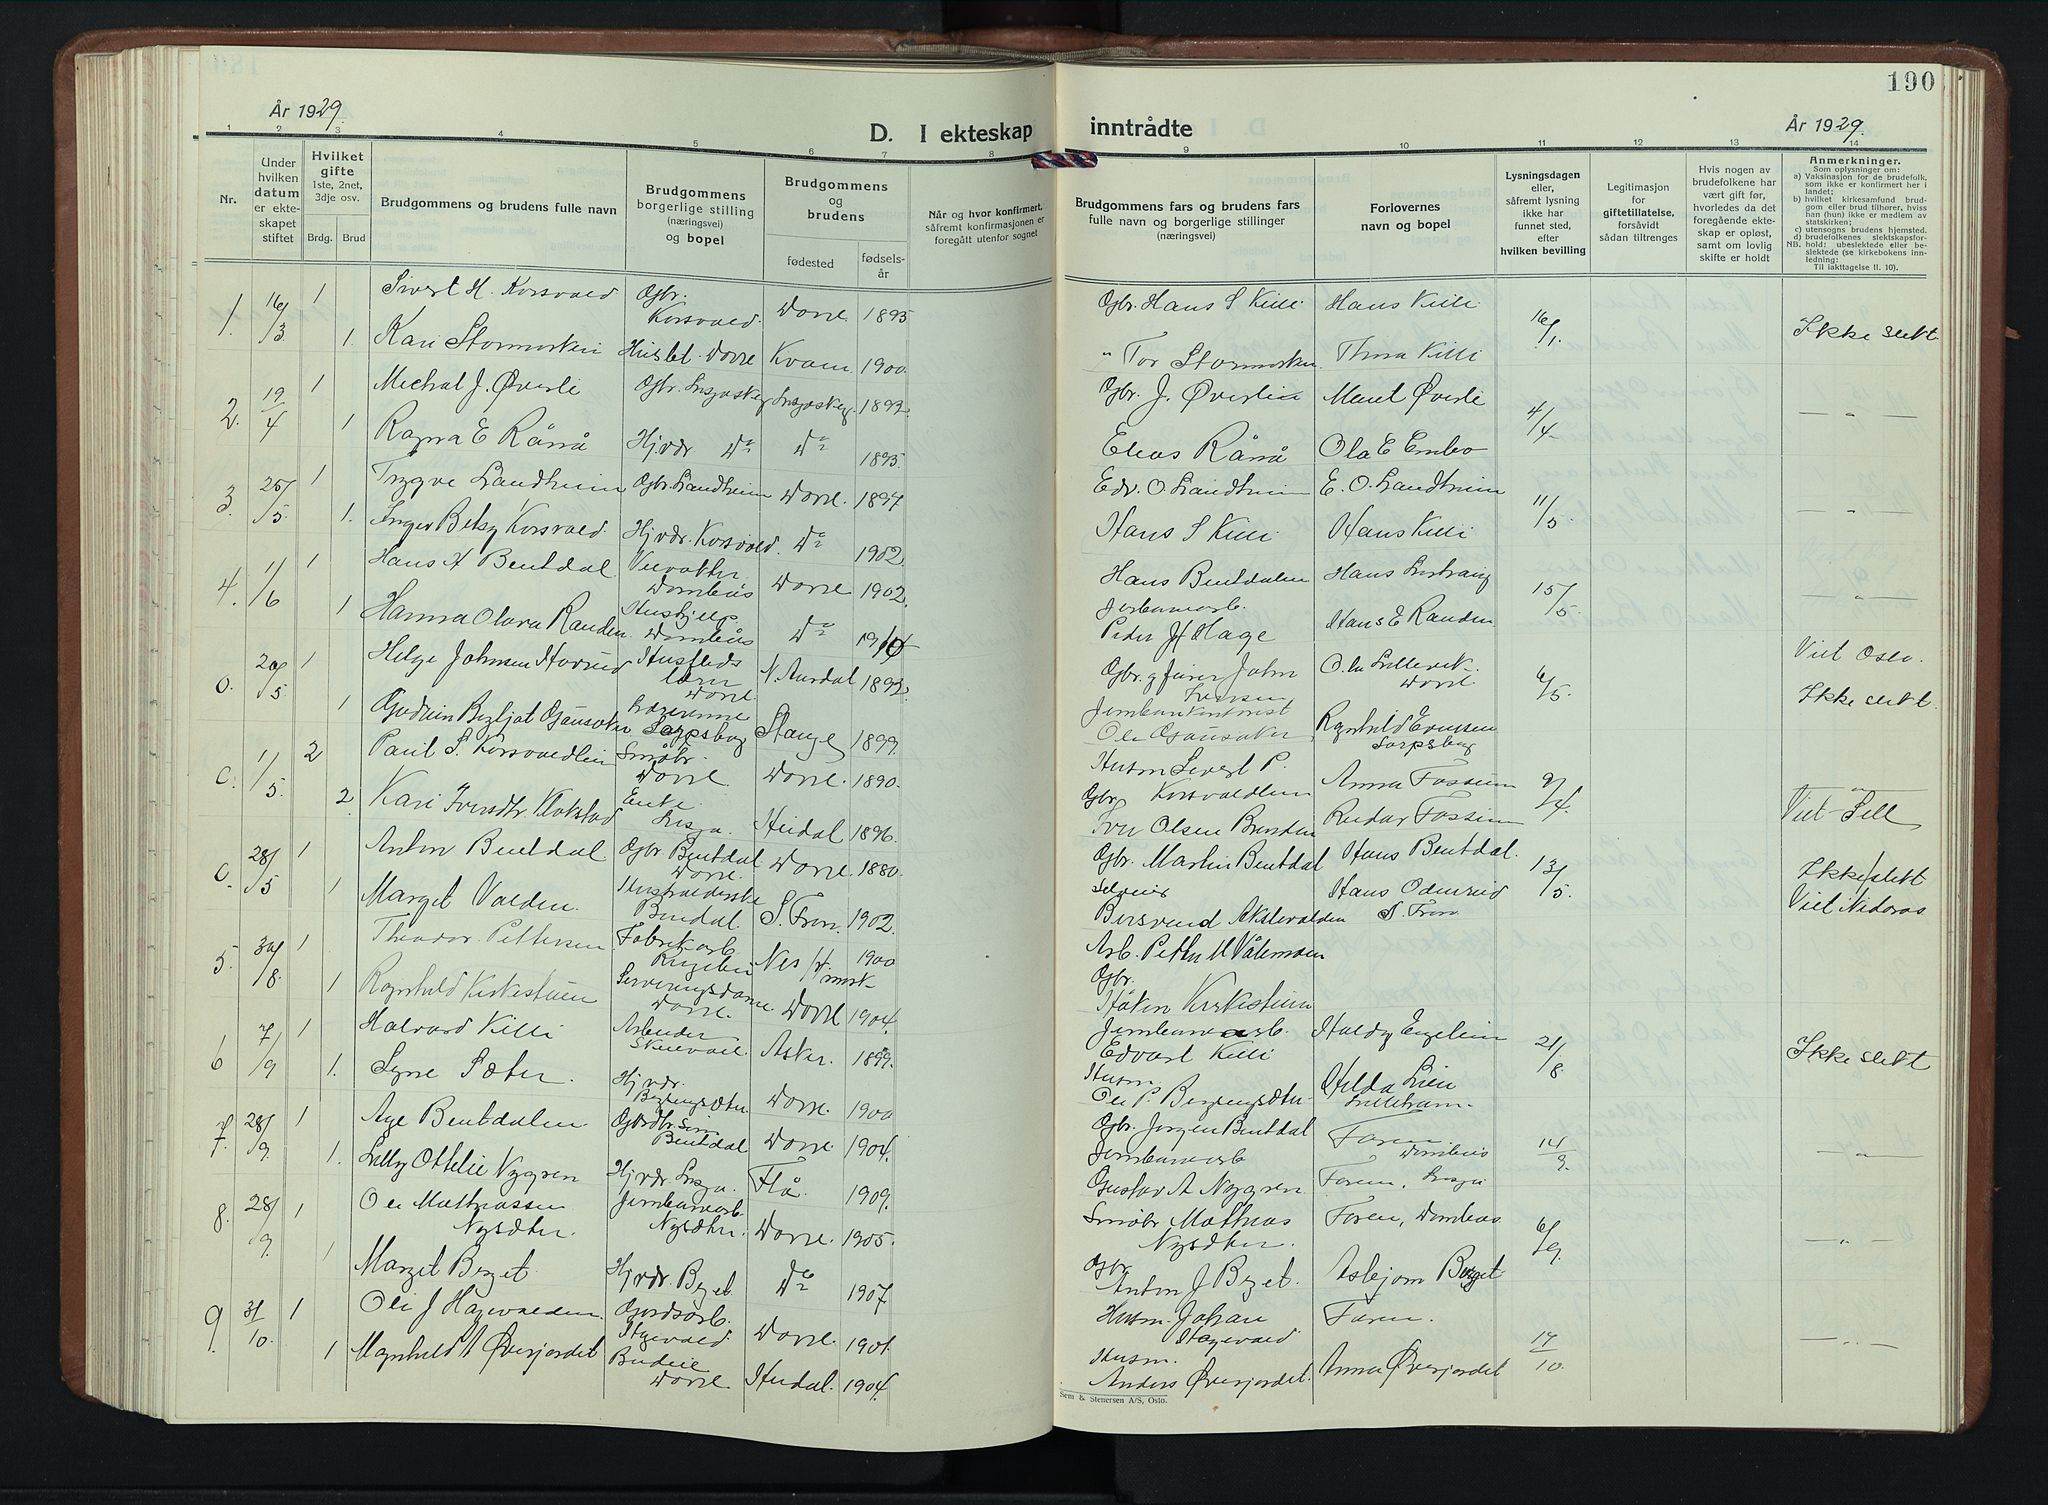 190
År 1929.
År 1929.
D. I ekteskap inntrådte
1 2 3 4 5 6 7 8 9 10 11 12 13 14
Nr.
Under hvilken datum er ekteskapet stiftet
Hvilket gifte
1ste, 2net, 3dje osv.
Brdg. Brud
Brudgommens og brudens fulle navn
Brudgommens borgerlige stilling (næringsvei) og bopel
Brudgommens og brudens
fødested
fødselsår
Når og hvor konfirmert, såfremt konfirmasjonen er foregått utenfor sognet
Brudgommens fars og brudens fars fulle navn og borgerlige stillinger (næringsvei)
Forlovernes navn og bopel
Lysningsdagen eller, såfremt lysning ikke har funnet sted, efter hvilken bevilling
Legitimasjon for giftetillatelse, forsåvidt sådan tiltrenges
Hvis nogen av brudefolkene har vært gift før, hvorledes da det foregående ekteskap er opløst, samt om lovlig skifte er holdt
Anmerkninger.
Som oplysning om:
a) Vaksinasjon for de brudefolk, som ikke er konfirmert her i landet;
b) hvilket kirkesamfund brudgom eller brud tilhører, hviss han (hun) ikke er medlem av statskirken;
c) utensogns brudens hjemsted.
d) brudefolkenes slektskapsforhold: ubeslektede eller beslektede (se kirkebokens innledning:
NB. Til iakttagelse II. 10).
1. 16/3 1 Sivert H. Korsvold Gbr. Korsvold. Dovre 1893 Gbr. Hans S Killi Hans Killi 16/1. Ikke slekt
1. Kari Stormorken Huslet. Dovre Kvam. 1900 " Tor Stormorken. Thina Killi
2. 19/4 1 Michal J. Øverli Gbr. 1892. Gbr. J. Øverlie Meret Øverli 4/4 — " —
1 Ragna E Rånå Hjvdr Do Do 1893. Elias Rånå Ola E Embo
3. 25/5. 1 Trygve Landheim Gbr. Landheim Dovre. 1897 Edv. O. Landheim E. O. Landheim 11/5. — " —
1. Inger Betsy Korsvold. Hjvdr. Korsvold. Do 1902. Hans S Killi. Hans Killi
4. 1/6 1 Hans H Bentdal Dombås Dovre 1902. Hans Bentdalen Hans 15/5. — " —
Jernbanearb.
1 Hanna Olava Randen. Hushjelp Dombås Do 1910 Peder H Hage Hans E Randen
Viet Oslo.
0. 20/5 1 Helge Johnsen Dovre N. Aurdal 1892. Gbr. John Larsen Ola Lillevik. Dovre 6/5. Ikke slekt.
1 Gudrun Bergljot Sarpsborg Stange 1899. Jernbankontorist Ole Ragnhild Evensen Sarpsborg
0. 1/5. 2 Paul S. Korsvoldlien Småbr. Dovre Dovre. 1890. Husm Sivert P. Korsvoldlien Anna Fossum 9/4.
2. Kari Iversdtr Klokstad Enke. Lesja. Heidal 1896. Gbr Iver Olsen Brenden Reidar Fossum Viet Sell
0. 28/5 1 Anton Bentdal Gbr Bentdal Dovre. Dovre. 1880. Gbr. Martin Bentdal Hans Bentdal. 13/5. Ikke slekt
1 Marget Valden. Bendal. S. Fron. 1902. Selveier Hans Odenrud S. Fron Viet Nidaros
5. 30/8 1 Theodor Pettersen Fabrikarb Nes 1900 Arb.
1 Ragnhild Kirkestuen Serveringsdame Dovre. Dovre 1904. Gbr. Håken Kirkestuen
6 7/9 1 Halvard Killi Arbeider Asker. 1899. Jernbanearb. Edvart Killi 21/8. Ikke slekt
1. Syne Sæter. Hjvdr. Dovre. 1900 Husm Ole P. Hilda Lien Lilleham.
7. 28/9. 1 Åge Bentdalen Gårdbr. sønn Bentdal Dovre. 1904. Gbr. Jørgen Bentdal Faren Dombås 14/9. — " —
1. Lilly Ottelie Nygren Hjvdr Lesja. Flå. 1909. Jernbanearb Gustav A Nygren Faren, Lesja
8. 28/9. 1 Ole Mathiassen Nysæter. Jernbanearb. Nysæter. Dovre. 1905. Småbr Mathias Nysæter. Faren, Dombås 6/9. — " —
1 Marget Berget. Hjvdr. Berget. Do 1907 Gbr Anton J Berget. Asbjørn Berget
9. 31/10. 1 Ole J Hagevolden Gårdsarb. Hagevold Dovre. 1901. Husm. Johan Hagevold Faren. 17/10. — " —
1 Magnhild A Øverjordet Budeie Dovre Heidal. 1904. Husm. Anders Øverjordet. Anna Øverjordet
Sem & Stenersen A/S, Oslo.